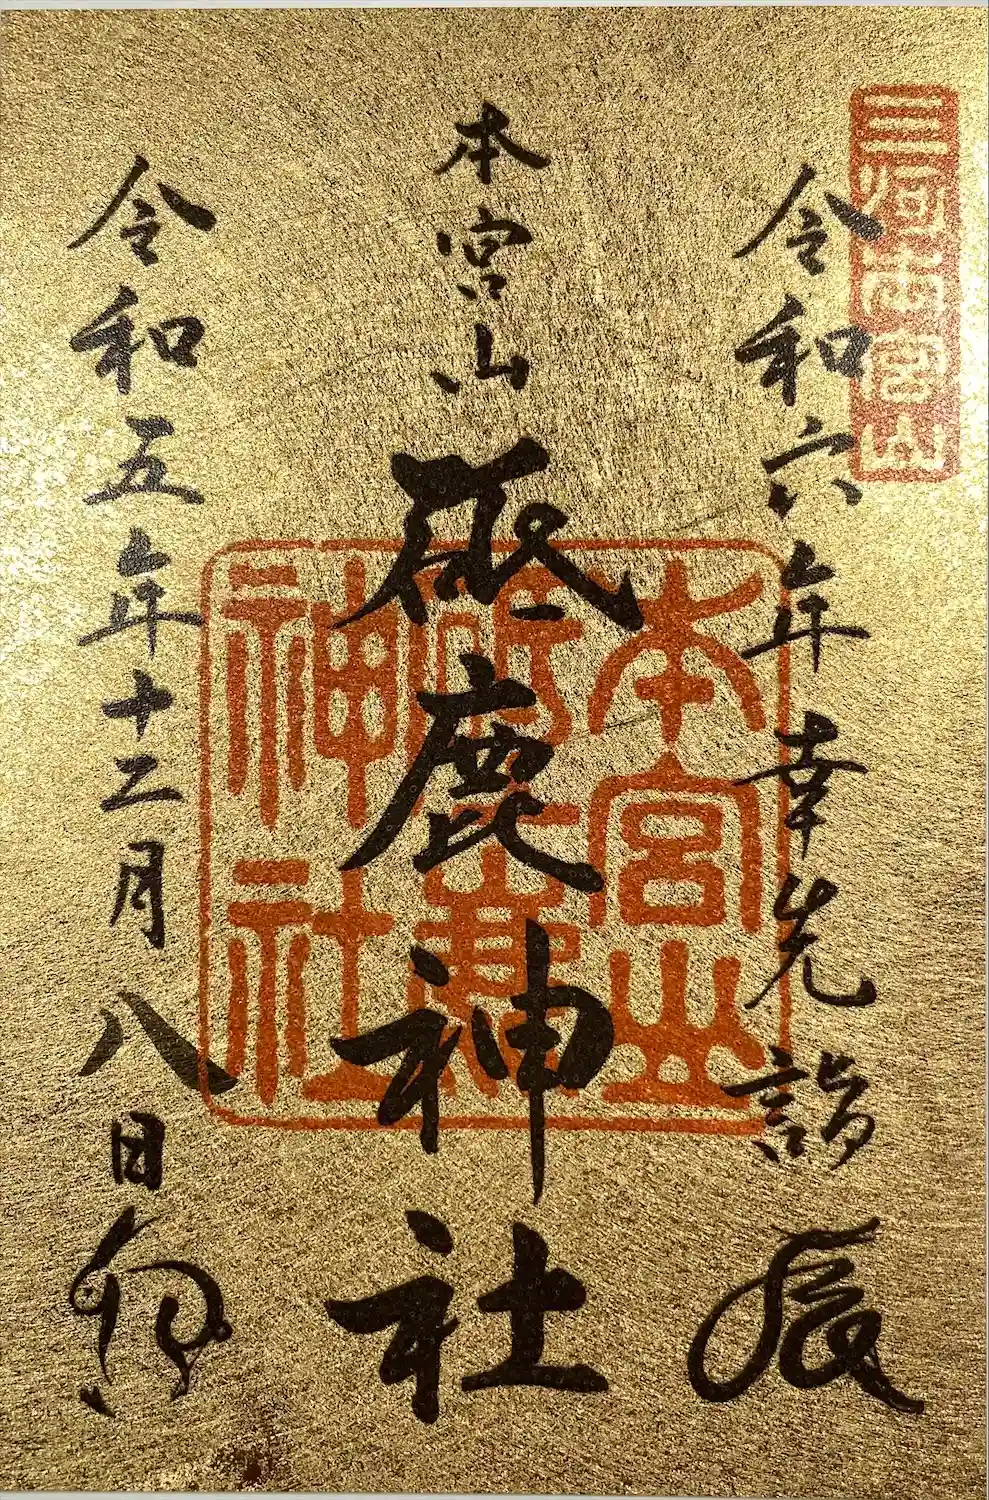 三河本宮山
令和六年幸先詣 辰
本宮山
砥鹿神社
令和五年十二月八日 卯
本宮山
神社